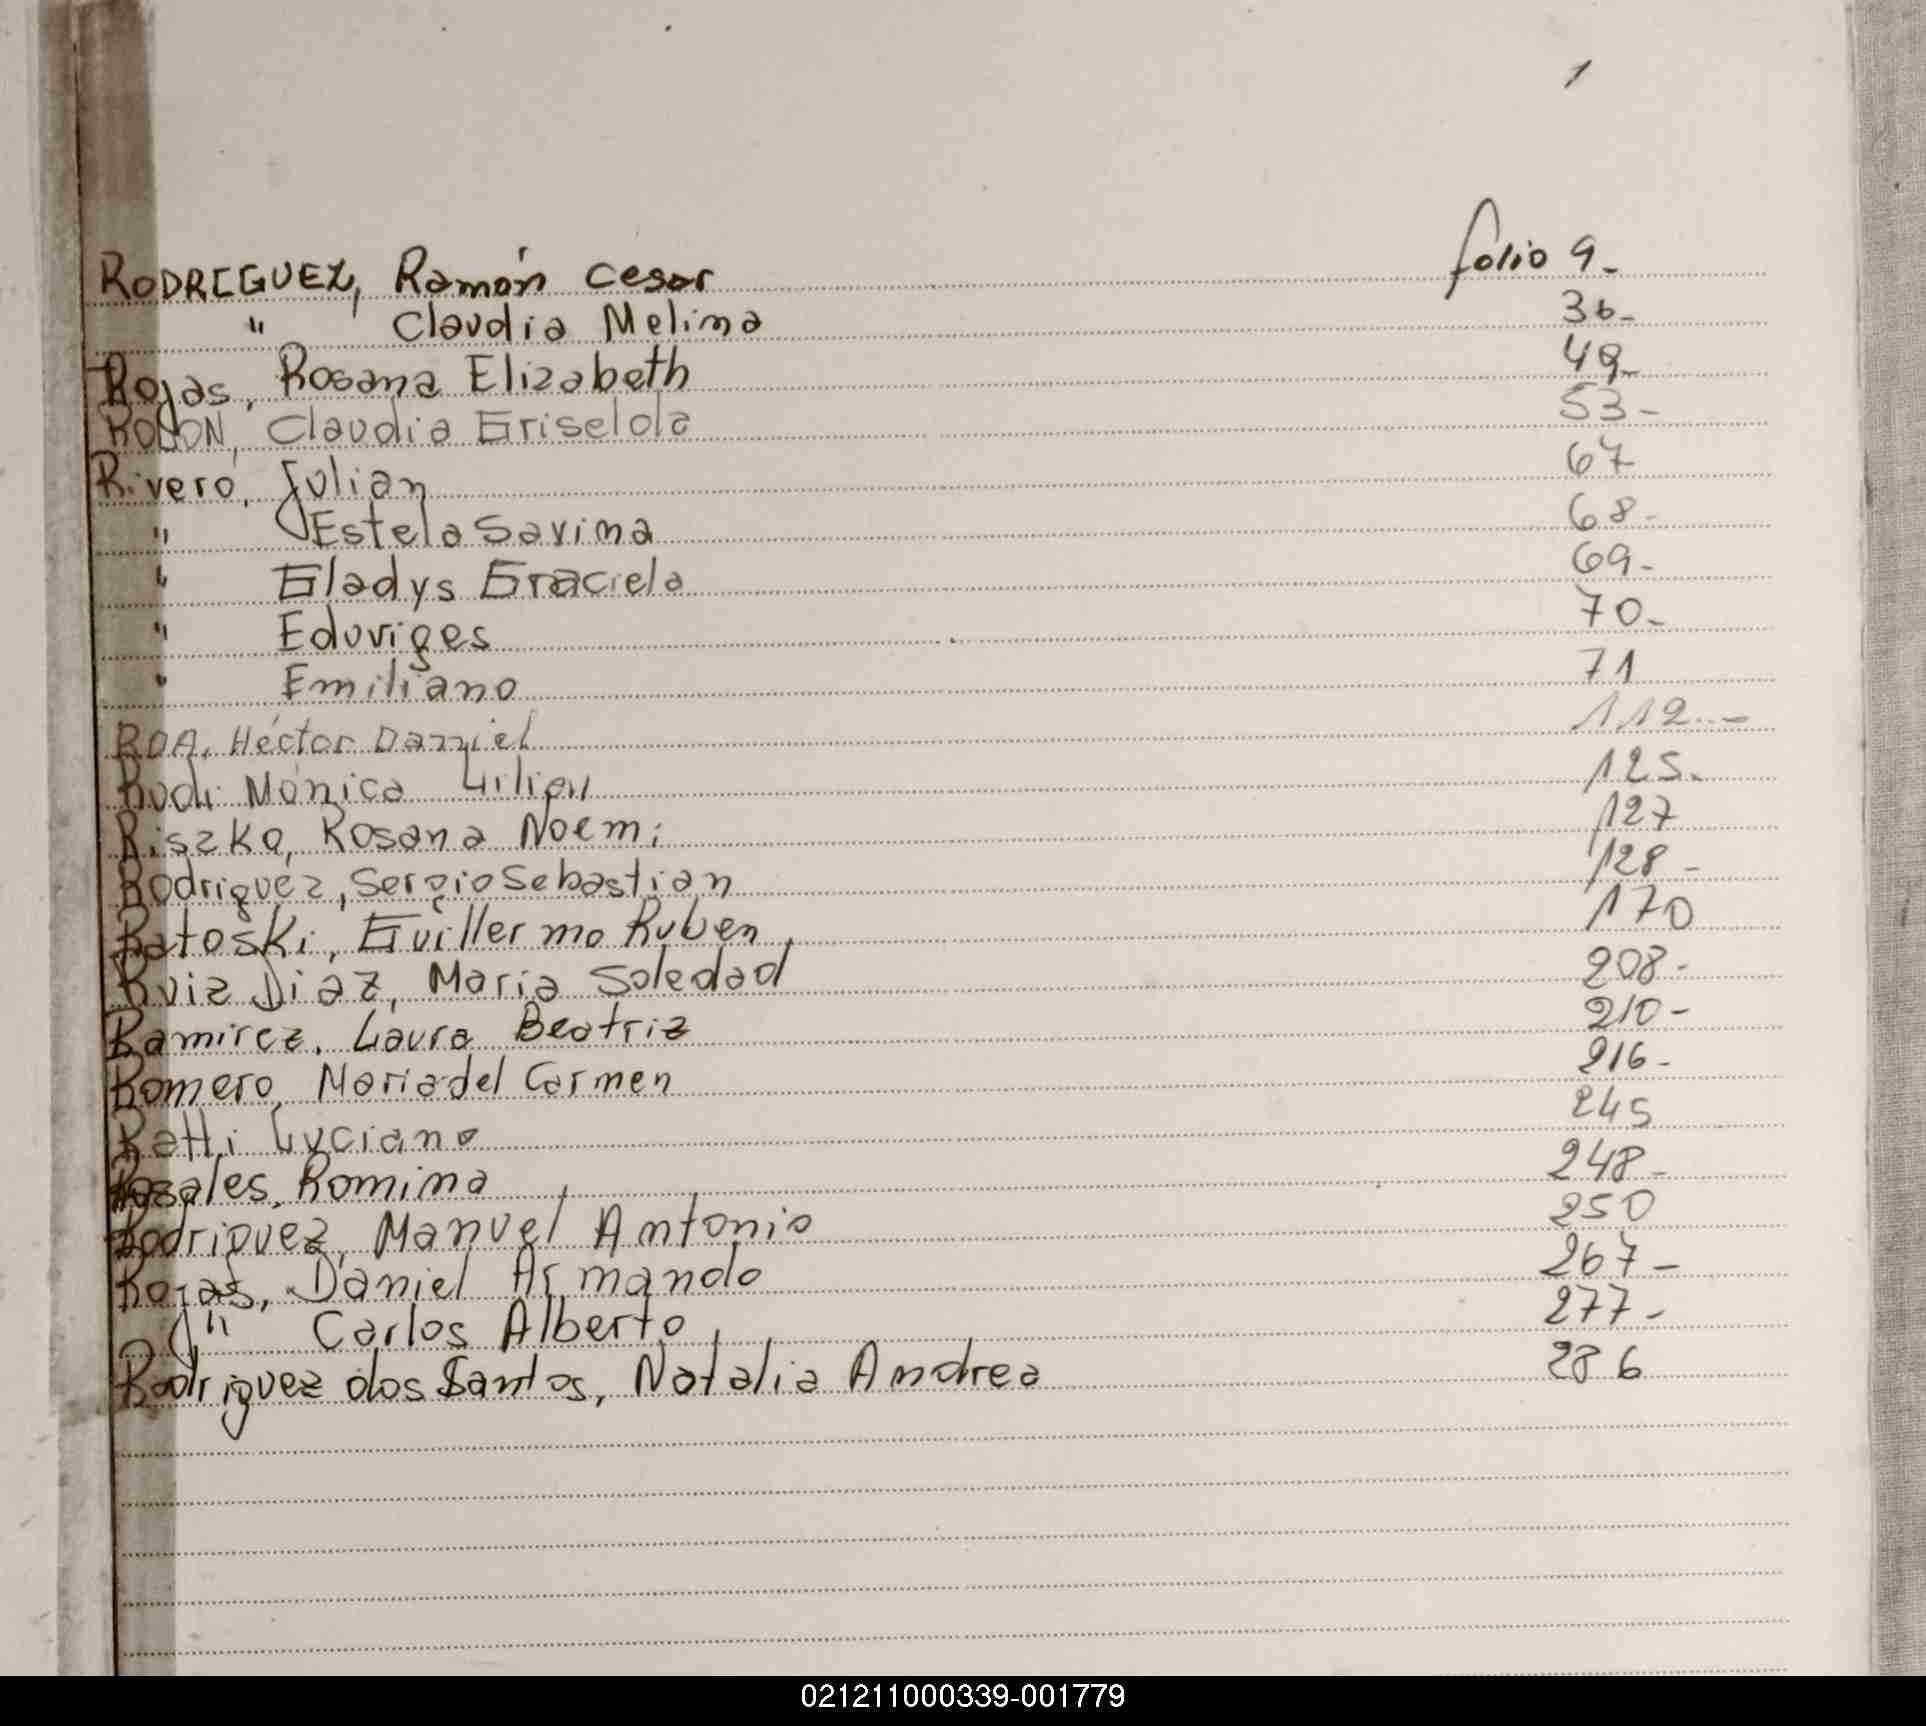 1
RODRIGUEZ, Ramón Cesar folio 9-
" Claudia Melina 36-
Rojas, Rosana Elizabeth 49-
ROLON, Claudia Griselda 53-
Rivero, Julian 67
" Estela Savina 68-
" Gladys Graciela 69-
" Eduviges 70-
" Emiliano 71
ROA, Héctor Daniel 112.-
Rudi Mónica Lilian 125.
Riszko, Rosana Noemi 127
Rodriguez, Sergio Sebastian 128-
Ratoski, Guillermo Ruben 170
Ruiz Diaz, Maria Soledad 208-
Ramirez, Laura Beatriz 210-
Romero, Maria del Carmen 216-
Ratti Luciano 245
Rosales, Romina 248-
Rodriguez, Manuel Antonio 250
Rojas, Daniel Armando 267-
" Carlos Alberto 277-
Rodriguez dos Santos, Natalia Andrea 286
021211000339-001779